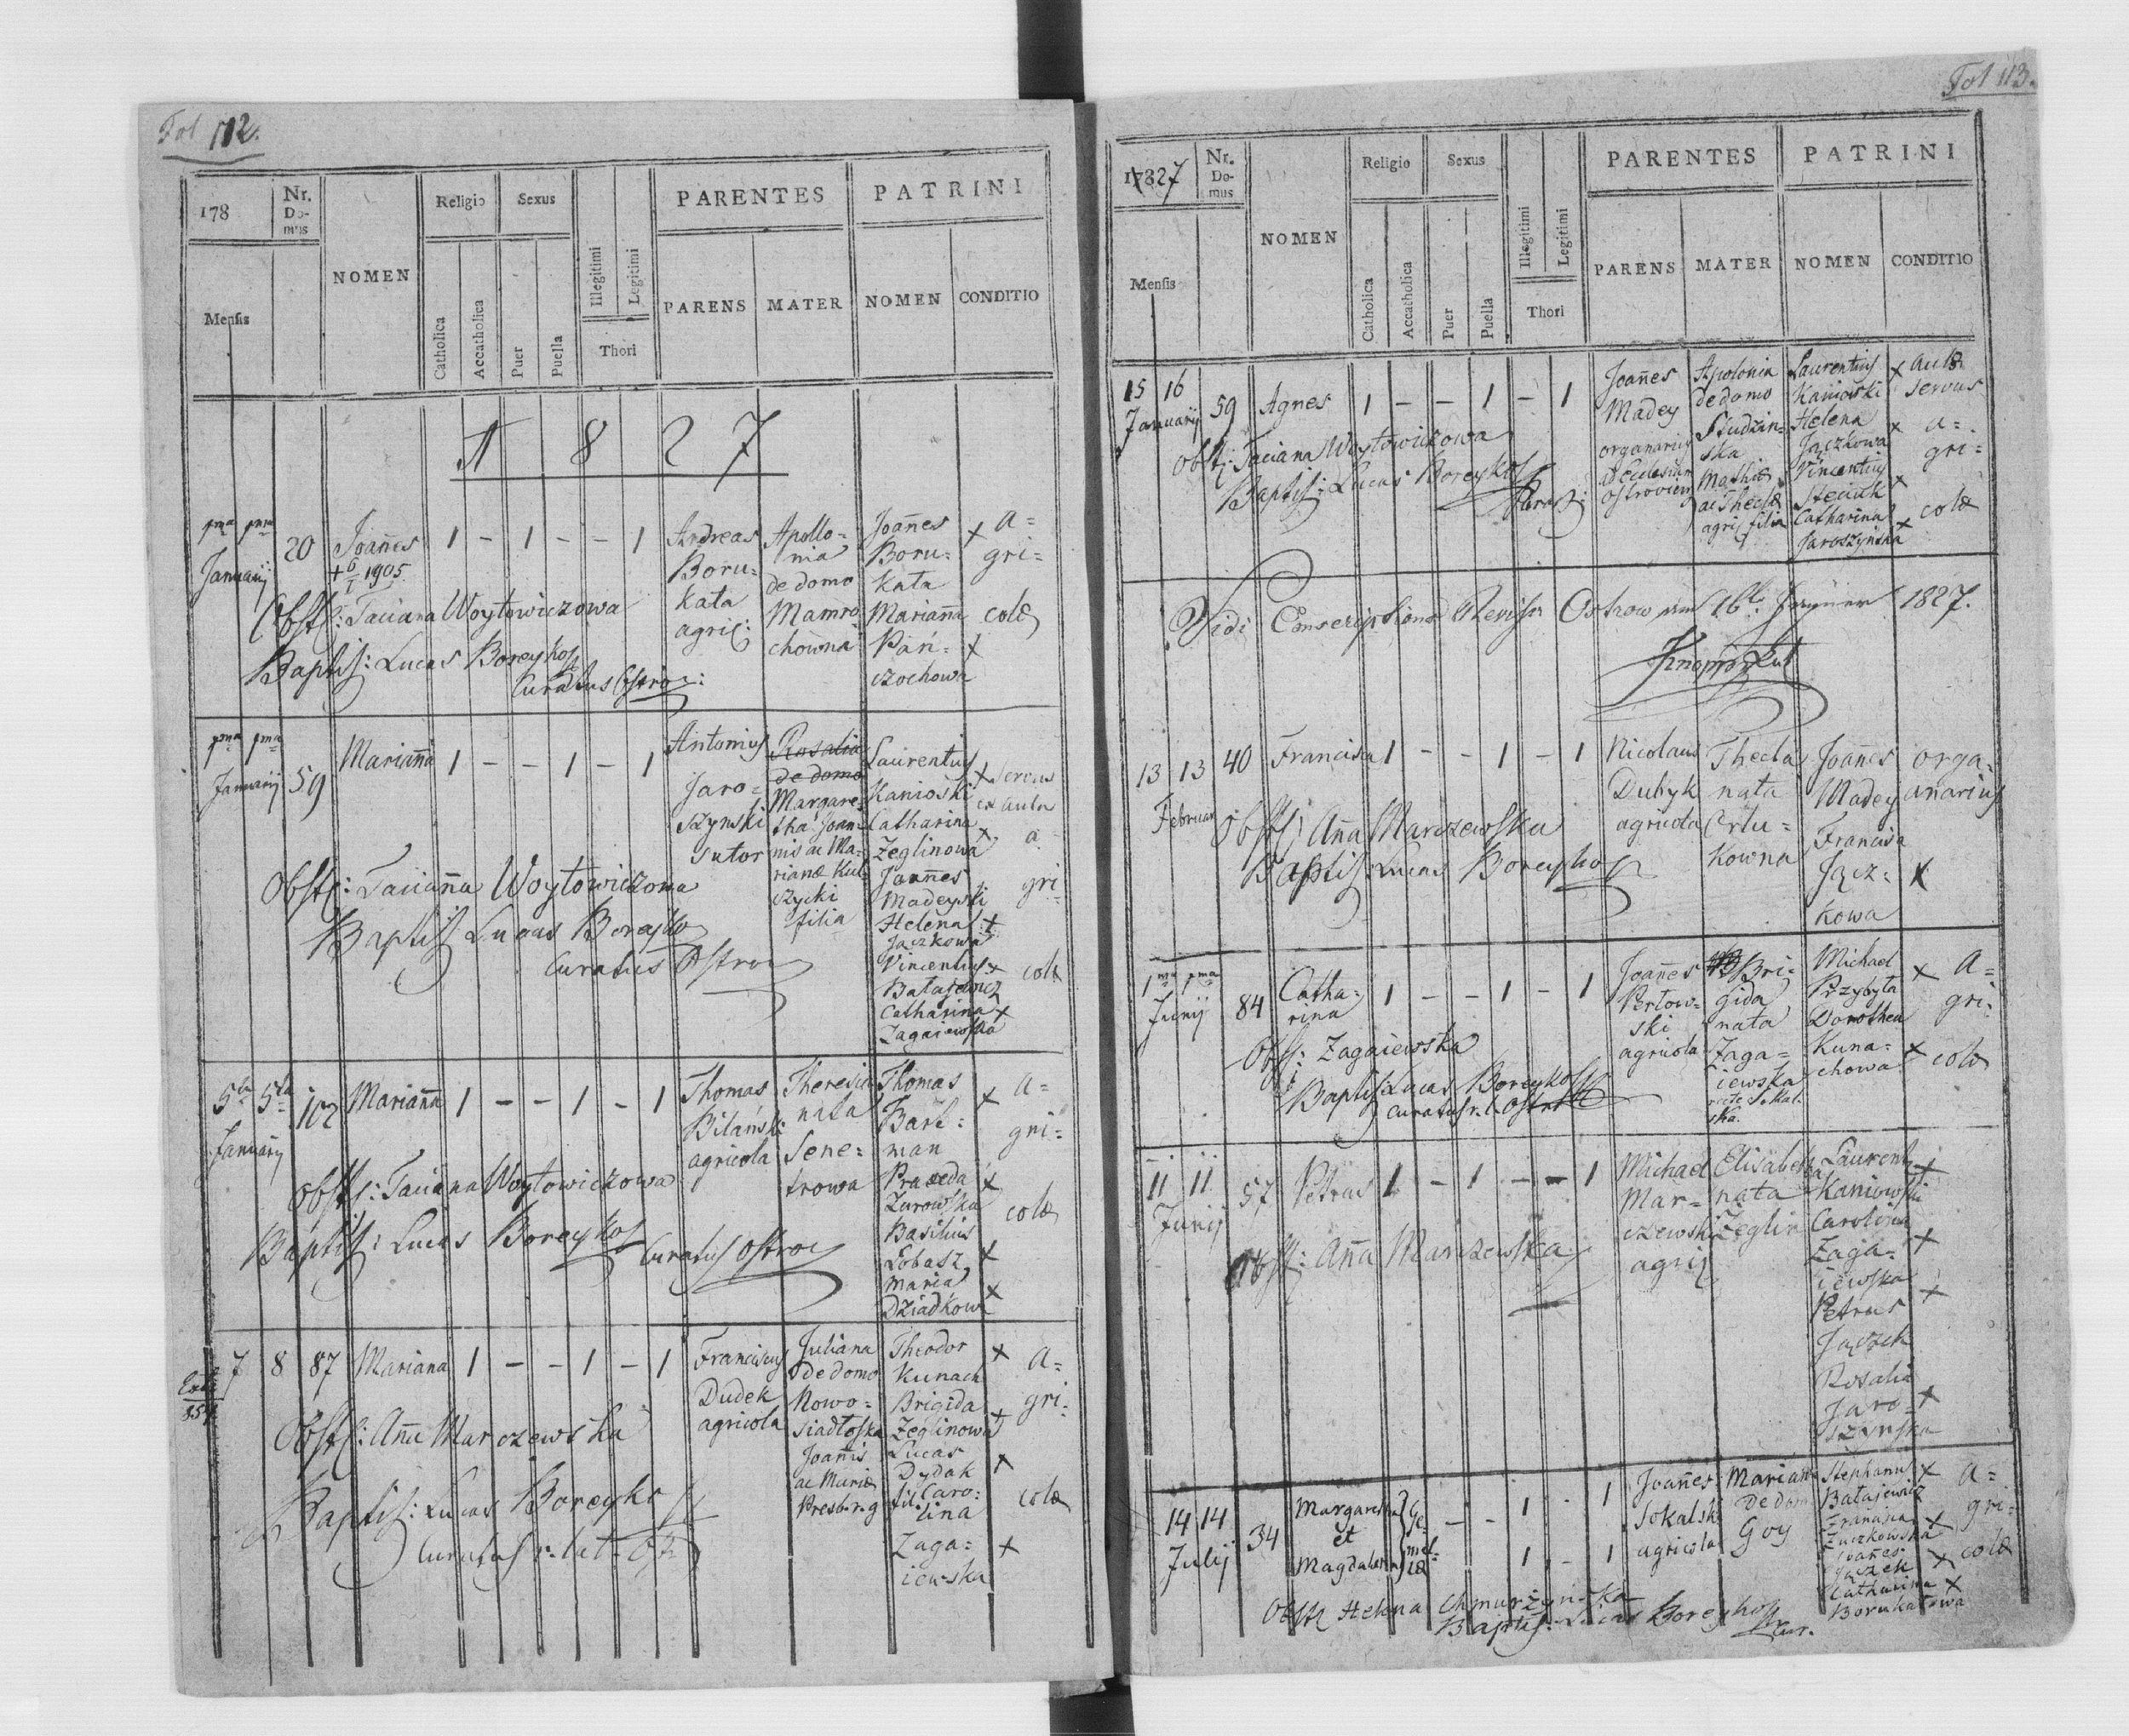 Fol 112.
178
Nr. Do-mus
NOMEN
Religio
Sexus
Illegitimi
Legitimi
PARENTES
PATRINI
Mensis
Catholica
Accatholica
Puer
Puella
Thori
PARENS
MATER
NOMEN
CONDITIO
1 8 2 7
pma pma
Januarij
20
Joañes
+ 6/I 1905
1 - 1 - - 1
Andreas
Boru=
kata
agric:
Apollo=
nia
de domo
Mamro
chowna
Joañes
Boru=
kata
Mariañа
Pań-
czochowa
x
x
a=
gri=
colæ
Obst: Taciana Woytowiczowa
Baptis: Lucas Boreyko
Curatus Ostrov:
pma pma
Januarij
59
Mariañа
1 - - 1 - 1
Antonius
Jaro=
szynski
sutor
Rosalia
de domo
Margare=
tha Joan=
nis ac Ma=
rianæ Kul
szycki
filia
Laurentius
Kanioski
Catharina
Zeglinowa
Joañes
Madeyski
Helena
Jaczkowa
Vincentius
Batajewicz
Catharina
Zagaiewska
x servus
ex aula
a
gri
colæ
Obst: Taciañа Woytowiczowa
Baptis Lucas Boreyko
Curatus Ostrov
5ta 5ta
Januarij
102
Mariañа
1 - - 1 - 1
Thomas
Bilański
agricola
Theresia
nata
Sene=
trowa
Thomas
Bart=
man
Praxeda
Zurowska
Basilius
Łobasz
Maria
Dziadkowa
x
x
x
x
a=
gri=
colæ
Obst: Taciana Woytowiczowa
Baptis: Lucas Boreyko
Curatus Ostrov
7 8 87
Mariana
1 - - 1 - 1
Franciscus
Dudek
agricola
Juliana
de domo
Nowo=
siadłoska
Joañis
ac Mariæ
Presburg fil
Theodor
Kunach
Brigida
Zeglinowa
Lucas
Dydak
Caro=
lina
Zaga=
iewska
x
x
x
x
a=
gri=
colæ
Obst: Anna Marczewska
Baptis: Lucas Boreyko
Curatus r. lat.
Fol 113.
1827
Nr. Do-mus
NOMEN
Religio
Sexus
Illegitimi
Legitimi
PARENTES
PATRINI
Mensis
Catholica
Accatholica
Puer
Puella
Thori
PARENS
MATER
NOMEN
CONDITIO
15 16
Januarij
59
Agnes
1 - - 1 - 1
Joañes
Madey
organarius
Apolonia
de domo
Studzin=
ska
Mathiæ
ac Theclæ
agric filia
Laurentius
Kaniowski
Helena
Jączkowa
Vincentius
Steciuk
Catharina
Jaroszynska
x aulæ
servus
x a=
gri=
x
x colæ
Obst: Taciana Woytowiczowa
Baptis: Lucas Boreyko
Vidi Conscriptions Revision Ostrow 16t 1827.
13 13
Februar
40
Francisca
1 - - 1 - 1
Nicolaus
Dubyk
agricola
Thecla
nata
Ortu=
kowna
Joañes
Madey
Francisca
Jącz=
kowa
orga=
anarius
x
Obst: Aña Marczewska
Baptis: Lucas Boreyko
1ma pma
Junij
84
Catha=
rina
1 - - 1 - 1
Joañes
Pertow=
ski
agricola
Bri=
gida
nata
Zaga=
iewska
recte Sokal=
ska.
Michael
Przybyta
Dorothea
Kuna=
chowa
x
x
a=
gri=
colæ
Obst: Zagaiewska
Baptis: Lucas Boreyko
Curatus r. l. Ostr
11 11
Junij
57
Petrus
1 - 1 - - 1
Michael
Mar=
czewski
agric
Elisabeth
nata
Zeglin
Laurent
Kaniowski
Carolina
Zaga=
iewska
Petrus
Jączek
Rosalia
Jaro=
szynska
x
x
x
x
Obst: Aña Marczewska
14 14
Julij
34
Margaretha
et
Magdalena
Ge=
mel=
læ
- - 1 - 1
1 - 1
Joañes
Sokalski
agricola
Mariana
de domo
Goy
Stephanus
Batajewicz
Francisca
Zuczkowska
Joañes
Jączek
Catharina
Borukatowa
x
x
x
x
a=
gri=
colæ
Obst Helena Chmurzyńska
Baptis: Lucas Boreyko
Cur.